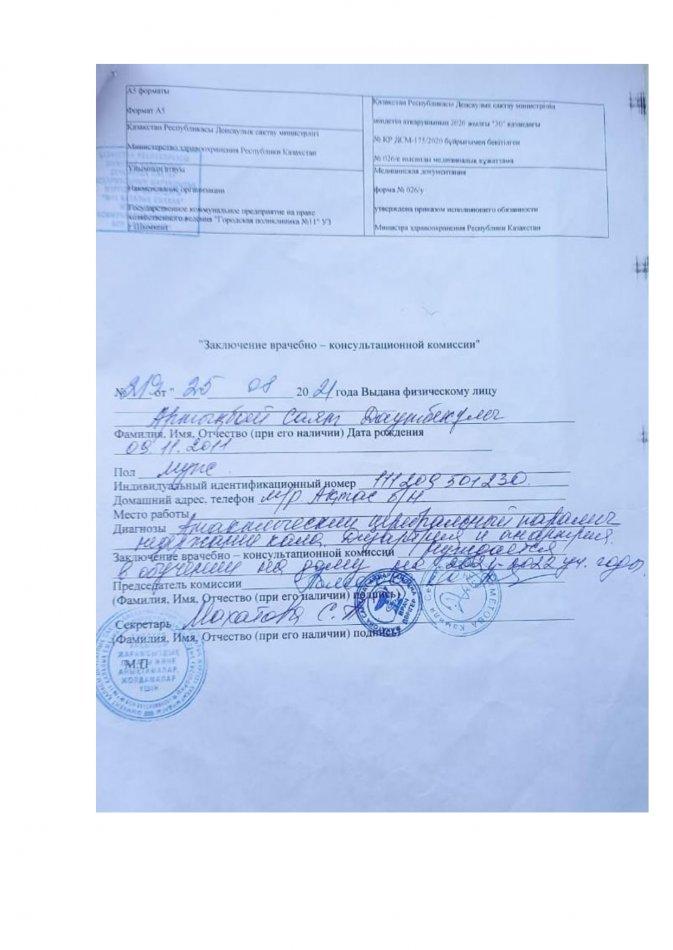 А5 форматы
Формат А5
Қазақстан Республикасы Денсаулық сақтау министрлігі
Министерство здравоохранения Республики Казахстан
Ұйымның атауы
Наименование организации
Государственное коммунальное предприятие на праве
хозяйственного ведения "Городская поликлиника №11" УЗ
г.Шымкент
Қазақстан Республикасы Денсаулық сақтау министрінің
міндетін атқарушының 2020 жылғы "30" қазандағы
№ ҚР ДСМ-175/2020 бұйрығымен бекітілген
№ 026/е нысанды медициналық құжаттама
Медицинская документация
форма № 026/у
утверждена приказом исполняющего обязанности
Министра здравоохранения Республики Казахстан
"Заключение врачебно – консультационной комиссии"
№219 от " 25 08 2021 года Выдана физическому лицу
Саят
Фамилия, Имя, Отчество (при его наличии) Дата рождения
09.11.2011
Пол муж.
Индивидуальный идентификационный номер 111209501230.
Домашний адрес, телефон м/р Актас б/н
Место работы
Диагнозы Атактический церебральный паралич
недержание кала. Дизартрия и
Заключение врачебно – консультационной комиссий нуждается
в обучении на дому на 2021-2022 уч. годы
Председатель комиссии
(Фамилия, Имя, Отчество (при его наличии) подпись)
Секретарь Махатова С.
(Фамилия, Имя, Отчество (при его наличии) подпись)
М.П